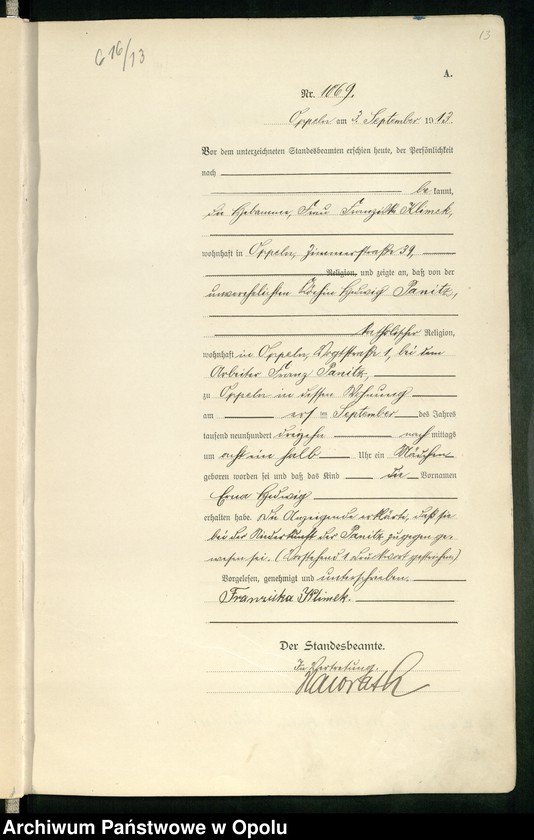 G 16/13
13
A.
Nr. 1069.
Oppeln am 2. September 1913.
Vor dem unterzeichneten Standesbeamten erschien heute, der Persönlichkeit
nach
bekannt,
die Hebamme, Frau Franziska Klimek,
wohnhaft in Oppeln, Zimmerstraße 39,
Religion, und zeigte an, daß von der
unverehelichten Köchin Hedwig Panitz,
katholischer Religion,
wohnhaft in Oppeln, Vogtstraße 1, bei dem
Arbeiter Franz Panitz,
zu Oppeln in dessen Wohnung
am ersten September des Jahres
tausend neunhundert dreizehn nachmittags
um acht ein halb Uhr ein Mädchen
geboren worden sei und daß das Kind die Vornamen
Erna Hedwig
erhalten habe. Die Anzeigende erklärte, daß sie
bei der Niederkunft der Panitz zugegen ge-
wesen sei. (Vorstehend 1 Druckwort gestrichen.)
Vorgelesen, genehmigt und unterschrieben.
Franziska Klimek.
Der Standesbeamte.
In Vertretung.
Archiwum Państwowe w Opolu